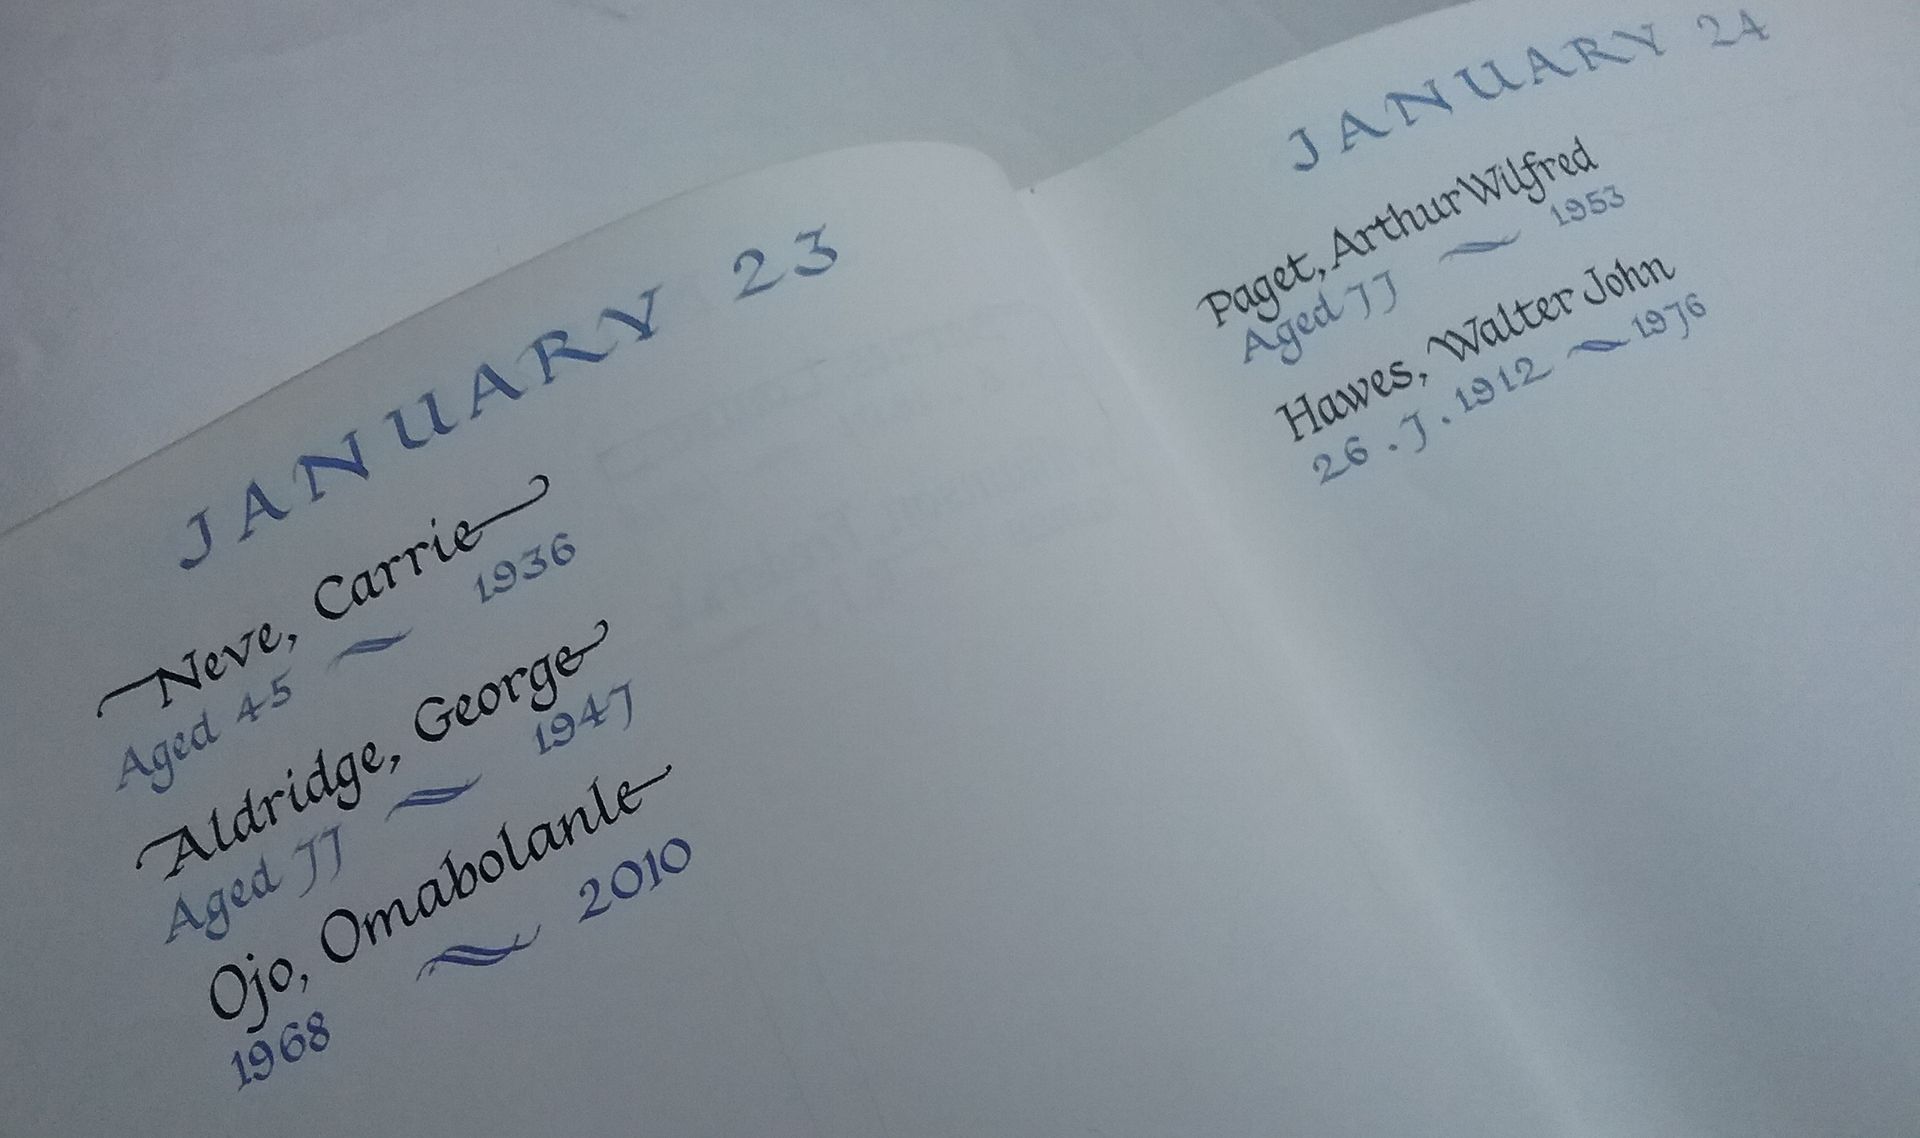 JANUARY 23
Neve, Carrie
Aged 45 ~ 1936
Aldridge, George
Aged 77 ~ 1947
Ojo, Omabolanle
1968 ~ 2010
JANUARY 24
Paget, Arthur Wilfred
Aged 77 ~ 1953
Hawes, Walter John
26.7.1912 ~ 1976